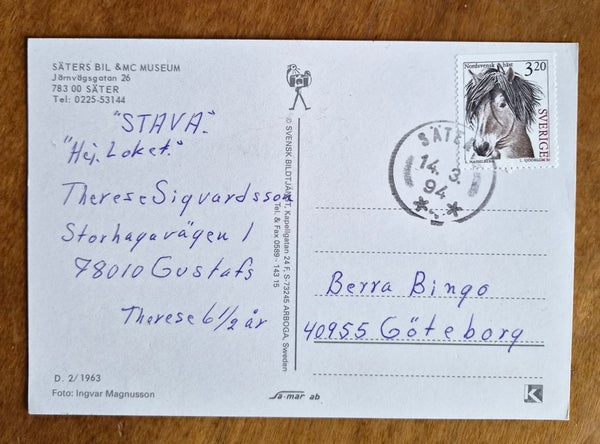 SÄTERS BIL & MC MUSEUM
Järnvägsgatan 26
783 00 SÄTER
Tel: 0225-53144
"STAVA"
"Hej. Loket."
Therese Sigvardsson
Storhagavägen 1
78010 Gustafs
Therese 6 1/2 år
D. 2/1963
Foto: Ingvar Magnusson
© SVENSK BILDTJÄNST, Kapellgatan 24 F, S-73245 ARBOGA, Sweden
Tel. & Fax 0589-143 15
sa-mar ab
Nordsvensk häst
3.20
SVERIGE
SÄTER
14.3.
94
Berra Bingo
40955 Göteborg
K